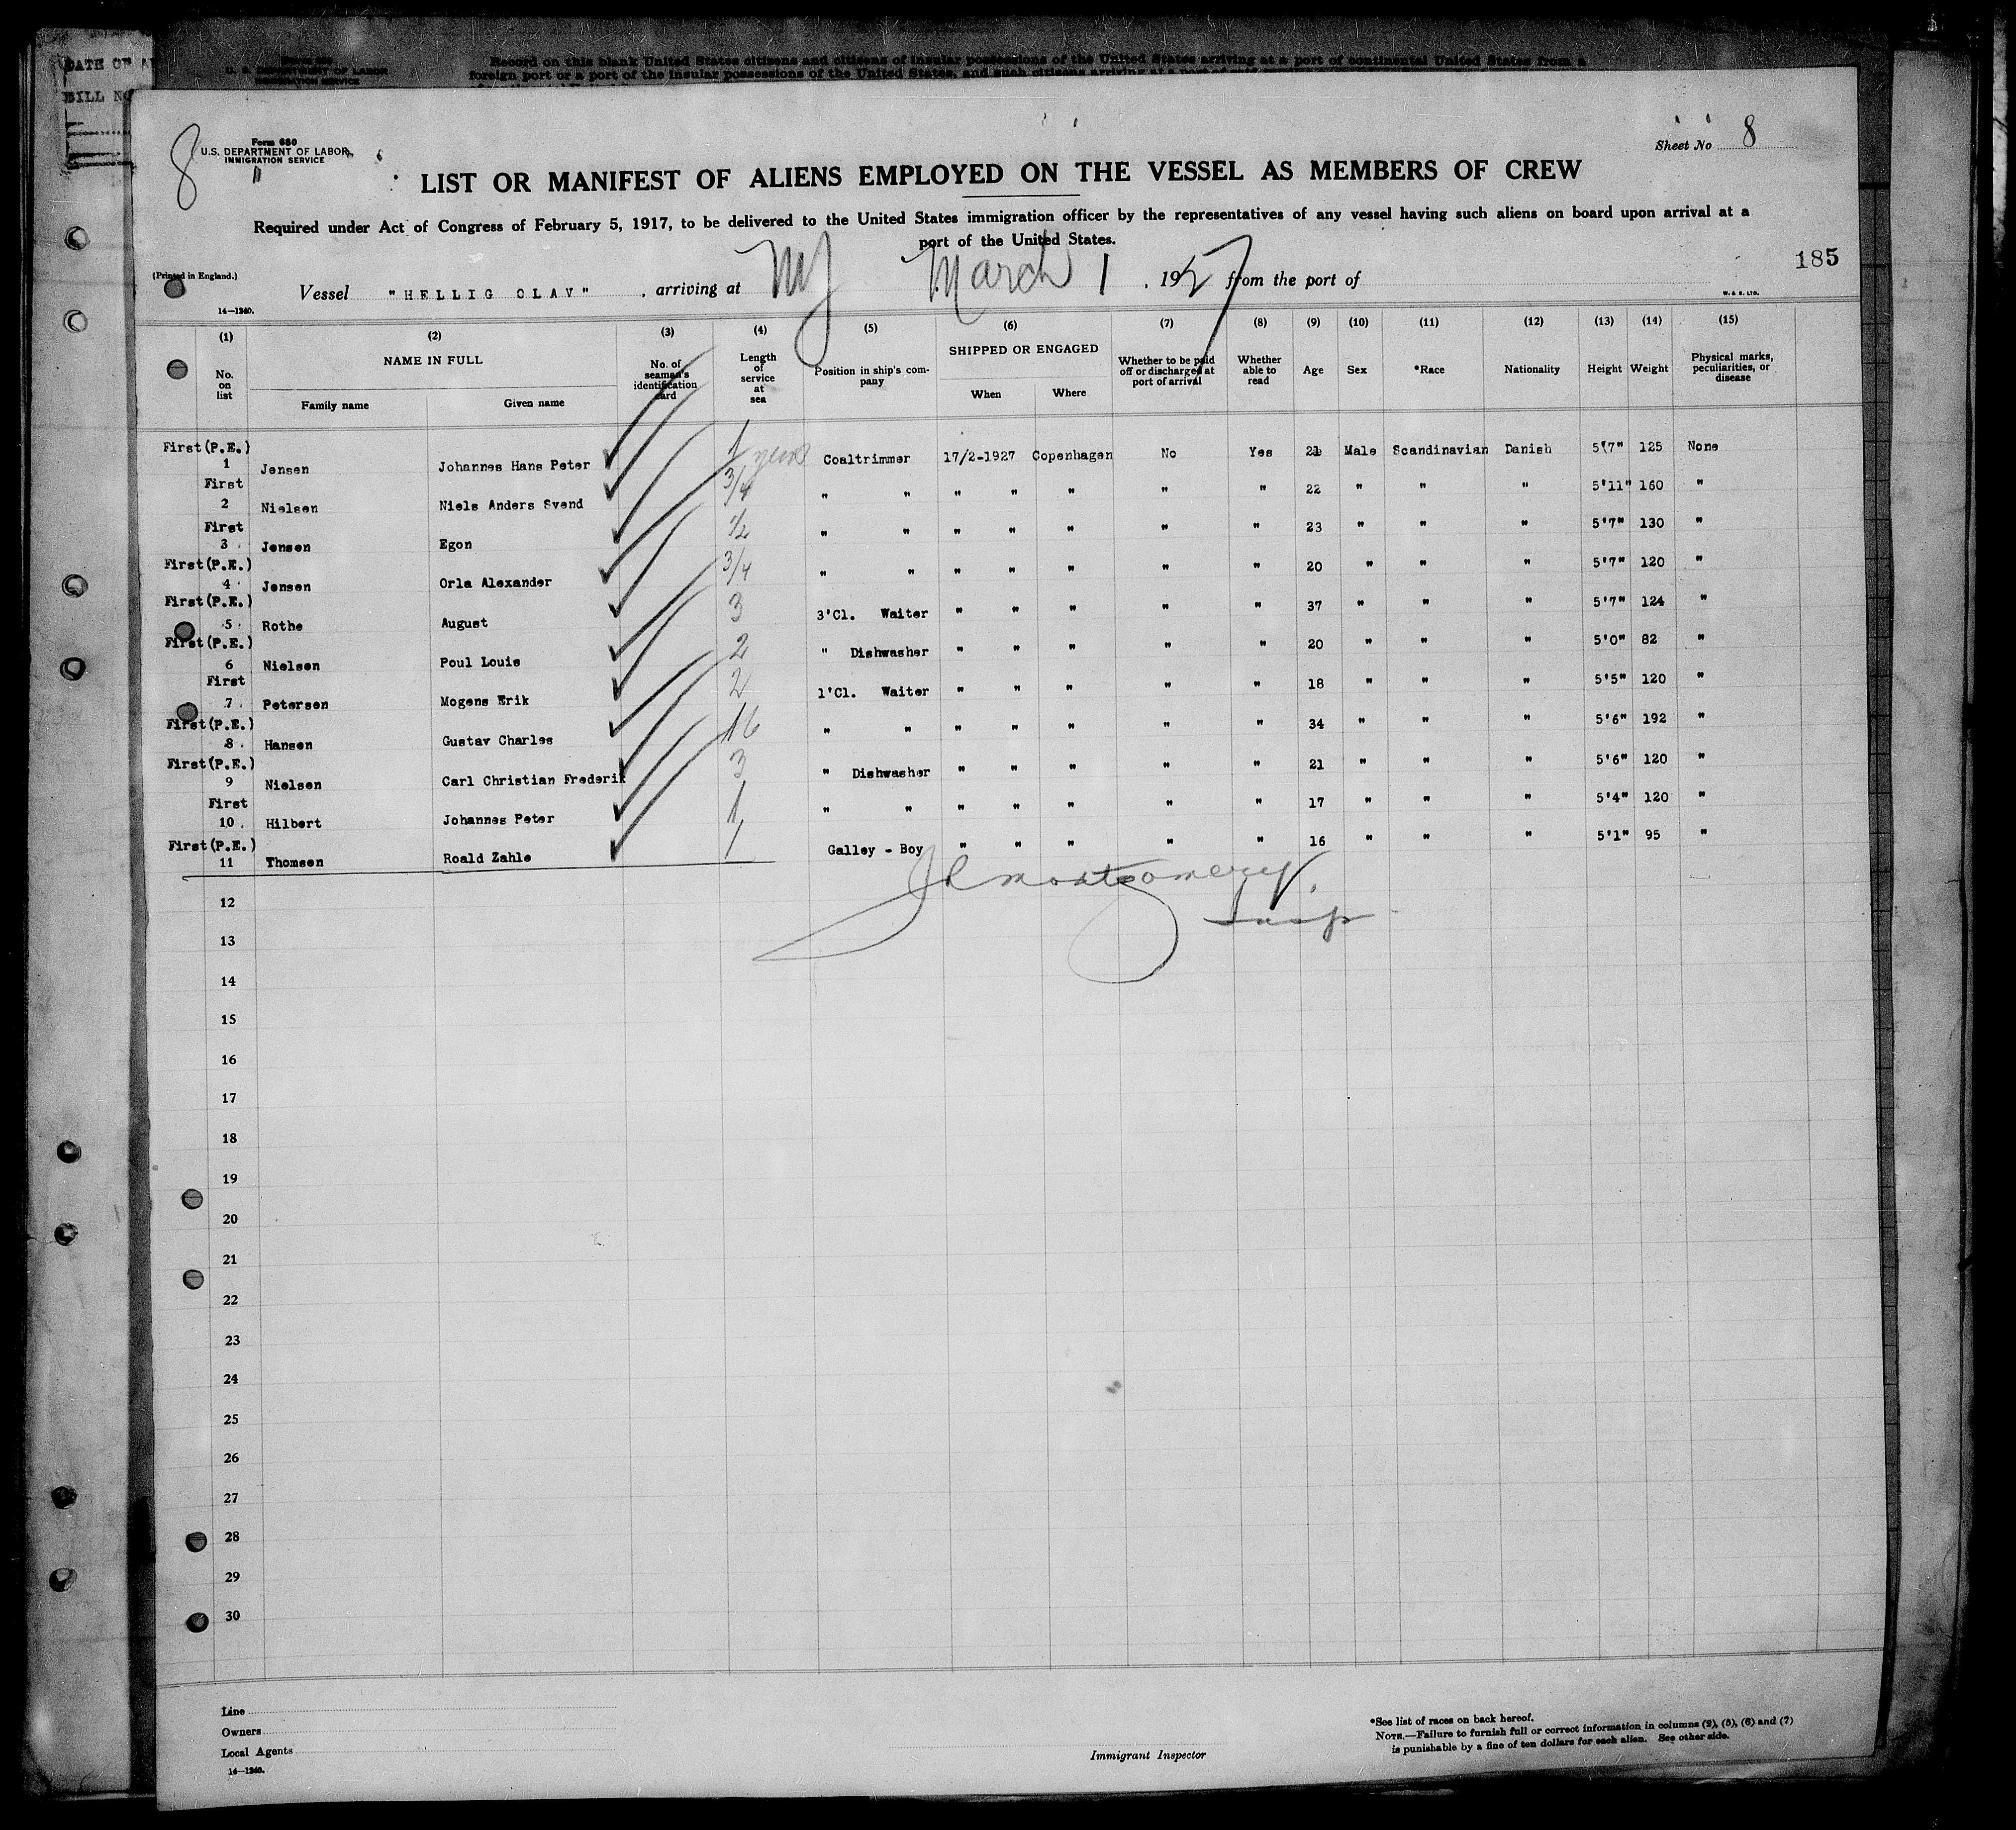 DATE OF
BILL NO
U. S. DEPARTMENT OF LABOR
IMMIGRATION SERVICE
Record on this blank United States citizens and citizens of insular possessions of the United States arriving at a port of continental United States from a
foreign port or a port of the insular possessions of the United States, and such citizens arriving at a port of
8
Form 680
U.S. DEPARTMENT OF LABOR
IMMIGRATION SERVICE
Sheet No 8
LIST OR MANIFEST OF ALIENS EMPLOYED ON THE VESSEL AS MEMBERS OF CREW
Required under Act of Congress of February 5, 1917, to be delivered to the United States immigration officer by the representatives of any vessel having such aliens on board upon arrival at a
port of the United States.
185
(Printed in England.)
Vessel "HELLIG OLAV", arriving at NY March 1, 1927 from the port of
14—1240.
W. & S. LTD.
(1) (2) (3) (4) (5) (6) (7) (8) (9) (10) (11) (12) (13) (14) (15)
No. on list NAME IN FULL Family name Given name No. of seaman's identification card Length of service at sea Position in ship's company SHIPPED OR ENGAGED When Where Whether to be paid off or discharged at port of arrival Whether able to read Age Sex *Race Nationality Height Weight Physical marks, peculiarities, or disease
First(P.E.)
1 Jensen Johannes Hans Peter 1 years Coaltrimmer 17/2-1927 Copenhagen No Yes 21 Male Scandinavian Danish 5'7" 125 None
First
2 Nielsen Niels Anders Svend 3/4 " " " " " " " 22 " " " 5'11" 160 "
First
3 Jensen Egon 1/2 " " " " " " " 23 " " " 5'7" 130 "
First(P.E.)
4 Jensen Orla Alexander 3/4 " " " " " " " 20 " " " 5'7" 120 "
First(P.E.)
5 Rothe August 3 3'Cl. Waiter " " " " " 37 " " " 5'7" 124 "
First(P.E.)
6 Nielsen Poul Louis 2 " Dishwasher " " " " " 20 " " " 5'0" 82 "
First
7 Petersen Mogens Erik 2 1'Cl. Waiter " " " " " 18 " " " 5'5" 120 "
First(P.E.)
8 Hansen Gustav Charles 16 " " " " " " " 34 " " " 5'6" 192 "
First(P.E.)
9 Nielsen Carl Christian Frederik 3 " Dishwasher " " " " " 21 " " " 5'6" 120 "
First
10 Hilbert Johannes Peter 1 " " " " " " " 17 " " " 5'4" 120 "
First(P.E.)
11 Thomsen Roald Zahle 1 Galley - Boy " " " " " 16 " " " 5'1" 95 "
Montgomery
Insp
12
13
14
15
16
17
18
19
20
21
22
23
24
25
26
27
28
29
30
Line
Owners
Local Agents
14—1240.
Immigrant Inspector
*See list of races on back hereof.
NOTE.—Failure to furnish full or correct information in columns (2), (5), (6) and (7)
is punishable by a fine of ten dollars for each alien. See other side.